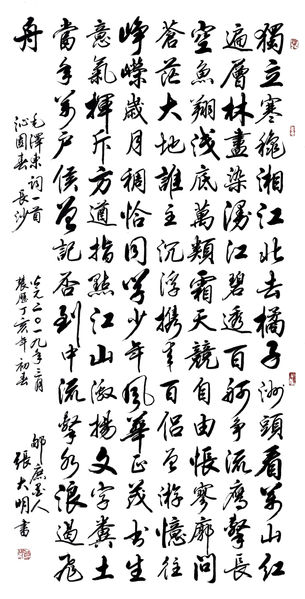 獨立寒秋湘江北去橘子洲頭看萬山紅
遍層林盡染漫江碧透百舸爭流鷹擊長
空魚翔淺底萬類霜天競自由悵寥廓問
蒼茫大地誰主沉浮攜來百侶曾游憶往
崢嶸歲月稠恰同學少年風華正茂書生
意氣揮斥方遒指點江山激揚文字糞土
當年萬戶侯曾記否到中流擊水浪遏飛
舟
毛澤東詞一首
沁園春 長沙
公元二〇一九年三月
農曆丁亥年初春
墨人
張大明書